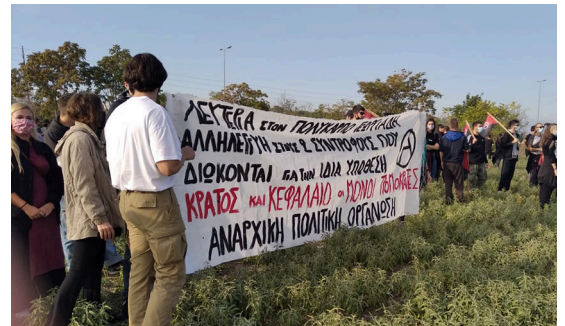 ΛΕΥΤΕΡΙΑ ΣΤΟΝ ΠΟΛΥΚΑΡΠΟ ΓΕΩΡΓΙΑΔΗ
ΑΛΛΗΛΕΓΓΥΗ ΣΤΟΥΣ 2 ΣΥΝΤΡΟΦΟΥΣ ΠΟΥ
ΔΙΩΚΟΝΤΑΙ ΓΙΑ ΤΗΝ ΙΔΙΑ ΥΠΟΘΕΣΗ
ΚΡΑΤΟΣ ΚΑΙ ΚΕΦΑΛΑΙΟ ΟΙ ΜΟΝΟΙ ΤΡΟΜΟΚΡΑΤΕΣ
ΑΝΑΡΧΙΚΗ ΠΟΛΙΤΙΚΗ ΟΡΓΑΝΩΣΗ